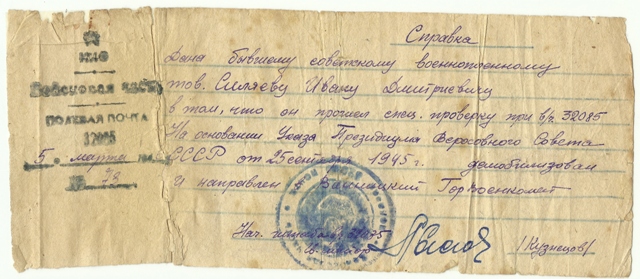 НКО
Войсковая часть
ПОЛЕВАЯ ПОЧТА
32085
5. марта
28
Справка
Дана бывшему советскому военнопленному
тов. Силяеву Ивану Дмитриевичу
в том, что он прошел спец. проверку при в/ч 32085
На основании Указа Президиума Верховного Совета
СССР от 25 сентября 1945 г. демобилизован
и направлен Горвоенкомат
Нач.
/Кузнецов/